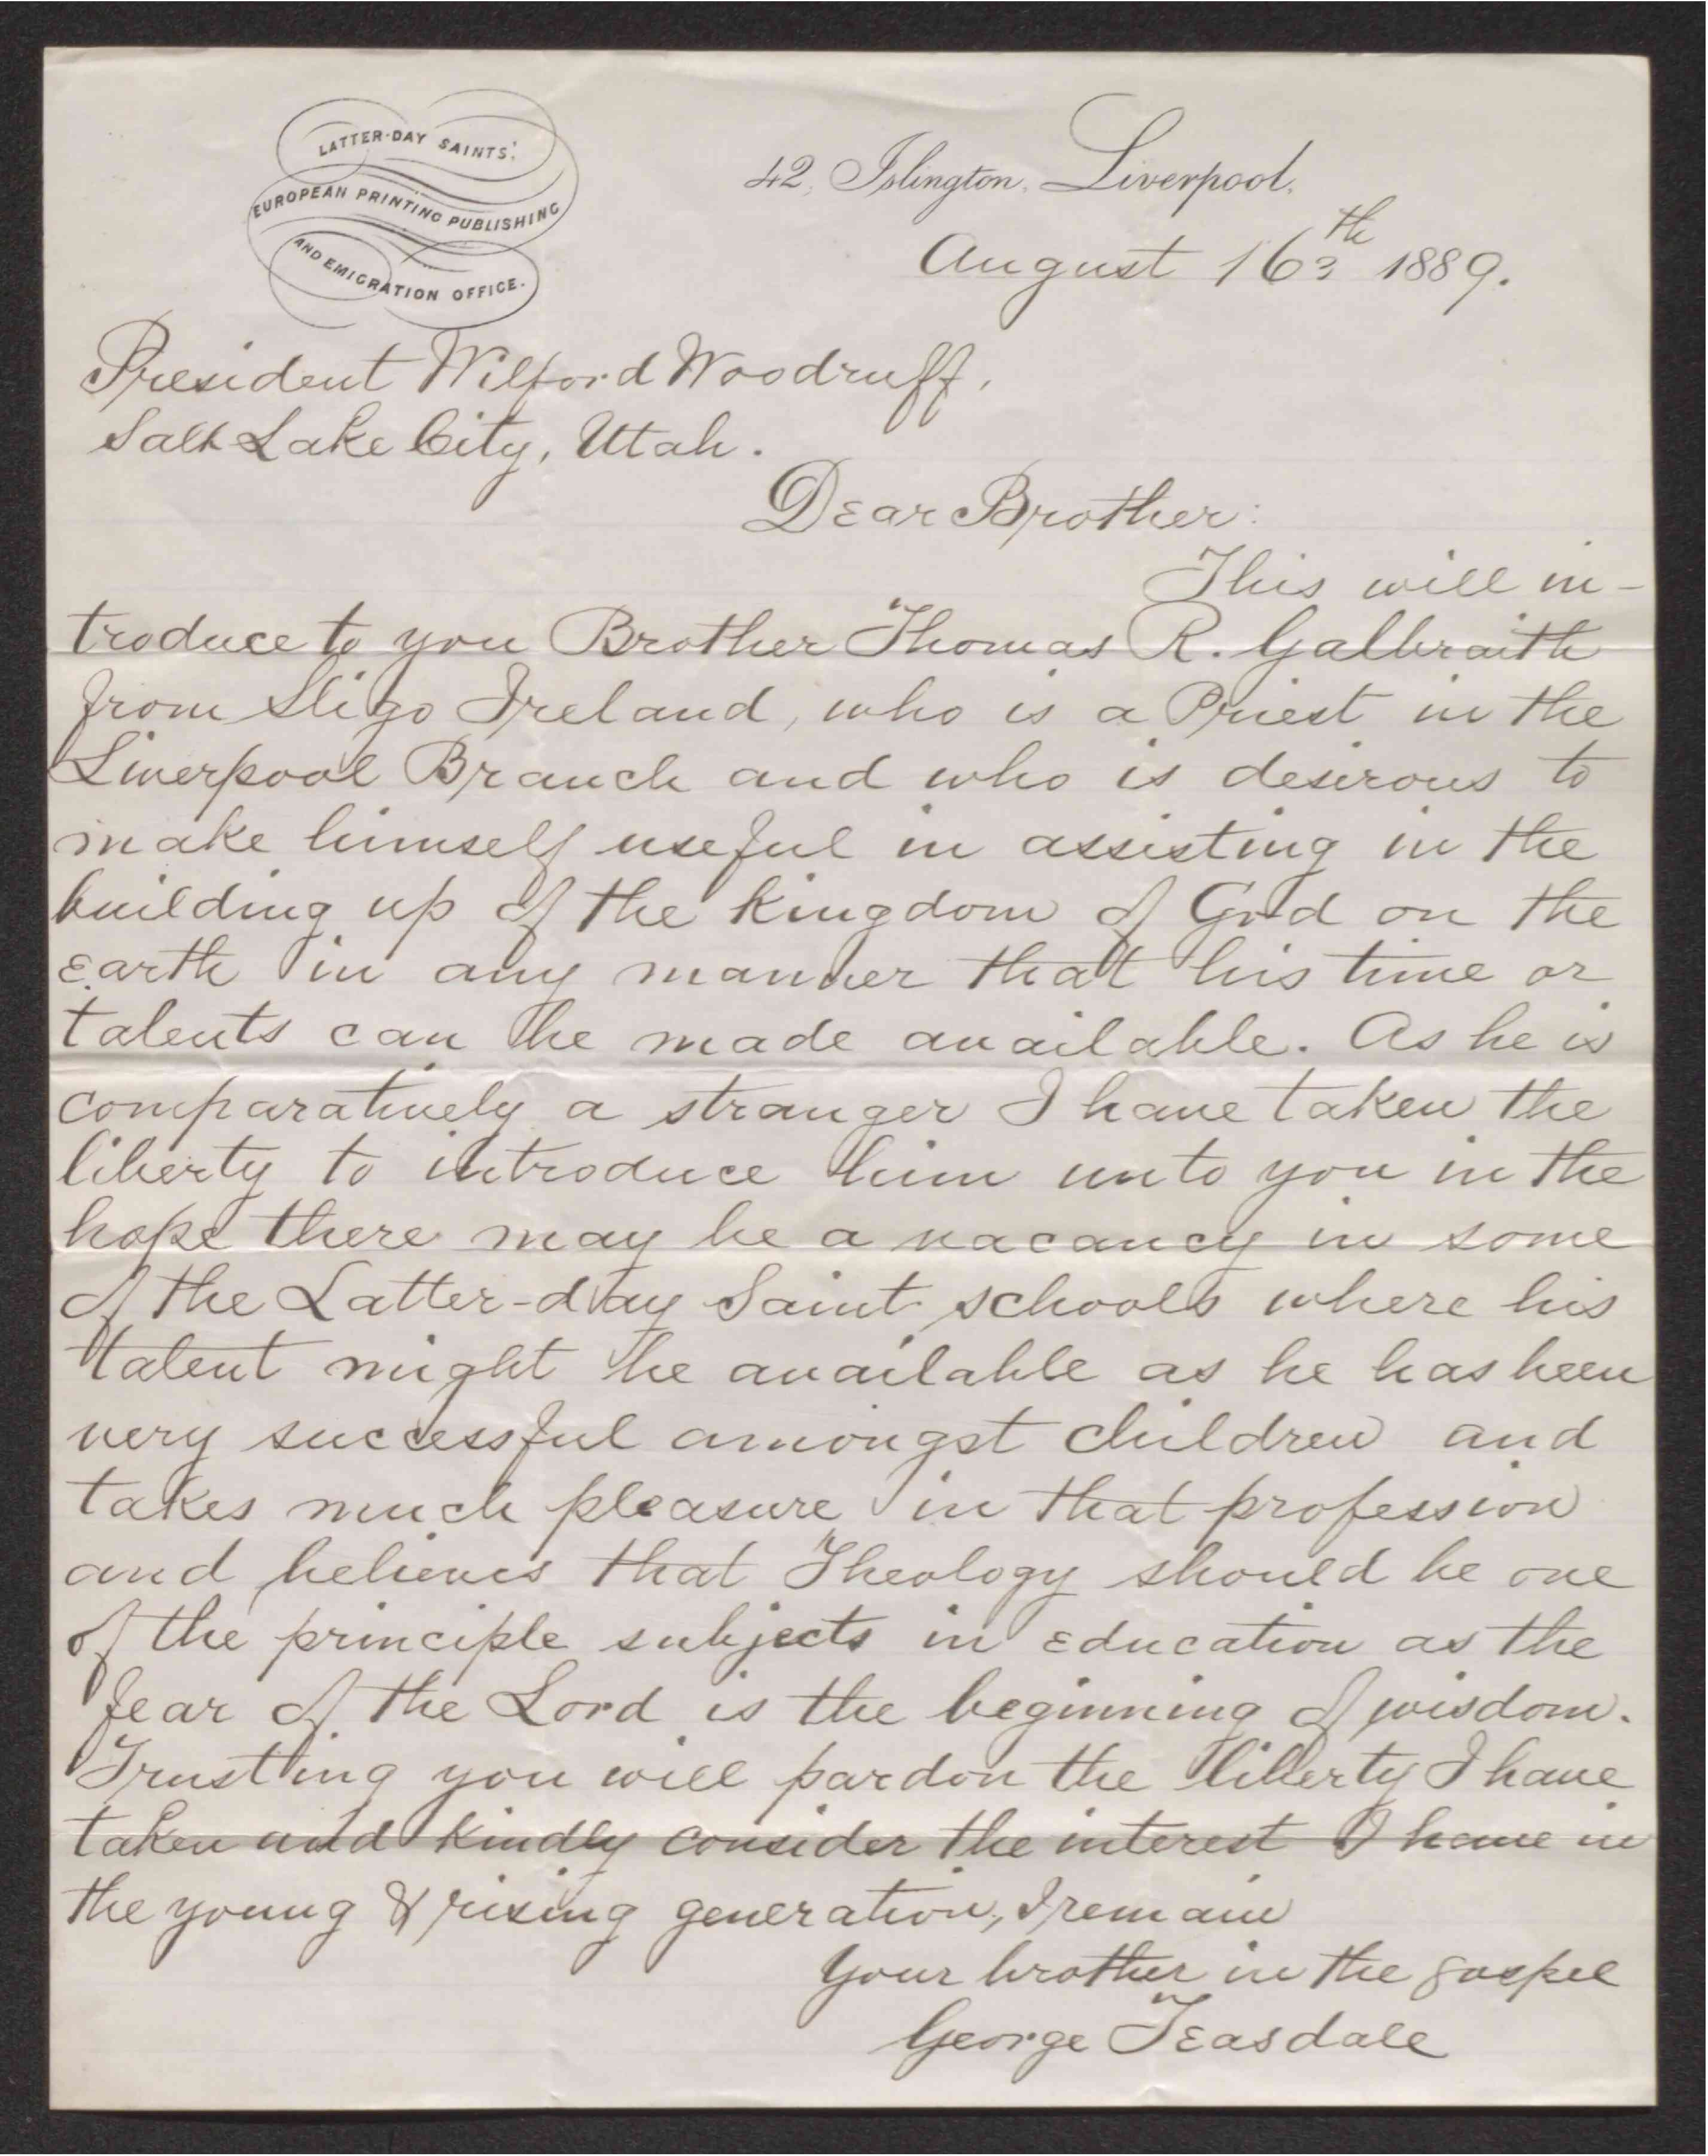 LATTER-DAY SAINTS'
EUROPEAN PRINTING PUBLISHING
AND EMIGRATION OFFICE.
42, Islington, Liverpool,
August 16th 1889.
President Wilford Woodruff,
Salt Lake City, Utah.
Dear Brother:
This will in-
troduce to you Brother Thomas R. Galbraith
from Sligo Ireland, who is a Priest in the
Liverpool Branch and who is desirous to
make himself useful in assisting in the
building up of the Kingdom of God on the
earth in any manner that his time or
talents can be made available. As he is
comparatively a stranger I have taken the
liberty to introduce him unto you in the
hope there may be a vacancy in some
of the Latter-day Saint schools where his
talent might be available as he has been
very successful amongst children and
takes much pleasure in that profession
and believes that Theology should be one
of the principle subjects in education as the
fear of the Lord is the beginning of wisdom.
Trusting you will pardon the liberty I have
taken and kindly consider the interest I have in
the young & rising generation, I remain
Your brother in the gospel
George Teasdale